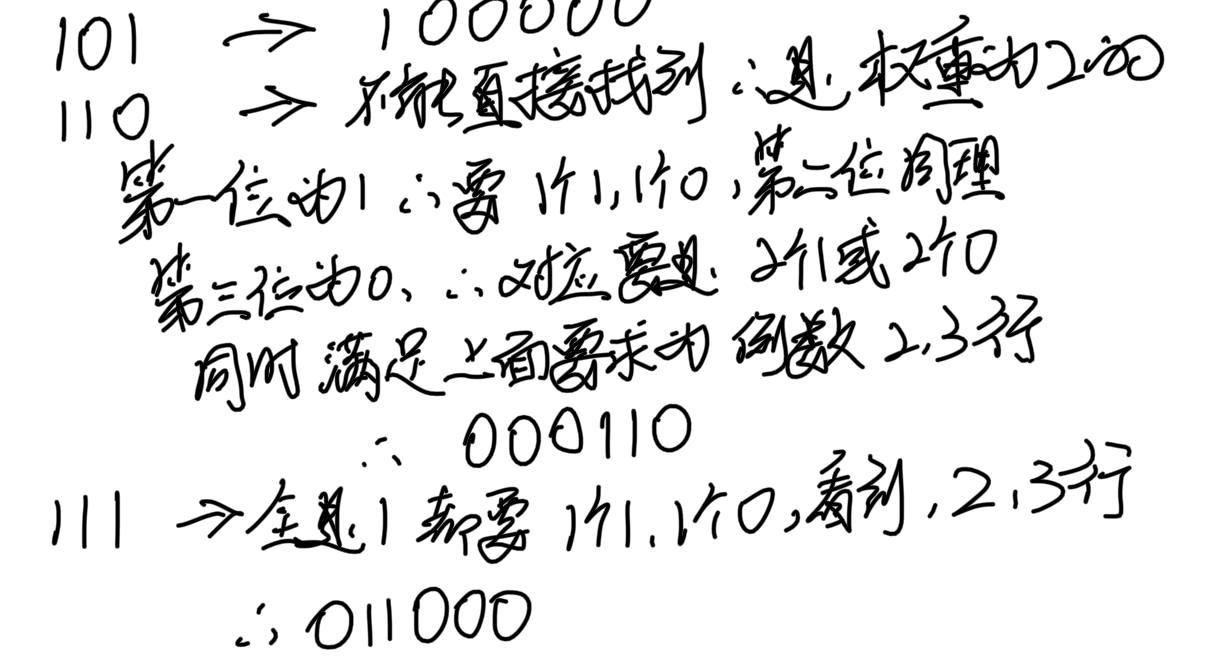 101 → 100000
110 → 不能直接找到 ∴是权重为2的
第一位为1 ∴要1个1,1个0,第二位同理
第三位为0, ∴对应要是2个1或2个0
同时满足上面要求为倒数2,3行
∴ 000110
111 → 全是1 都要1个1,1个0,看到,2,3行
∴ 011000